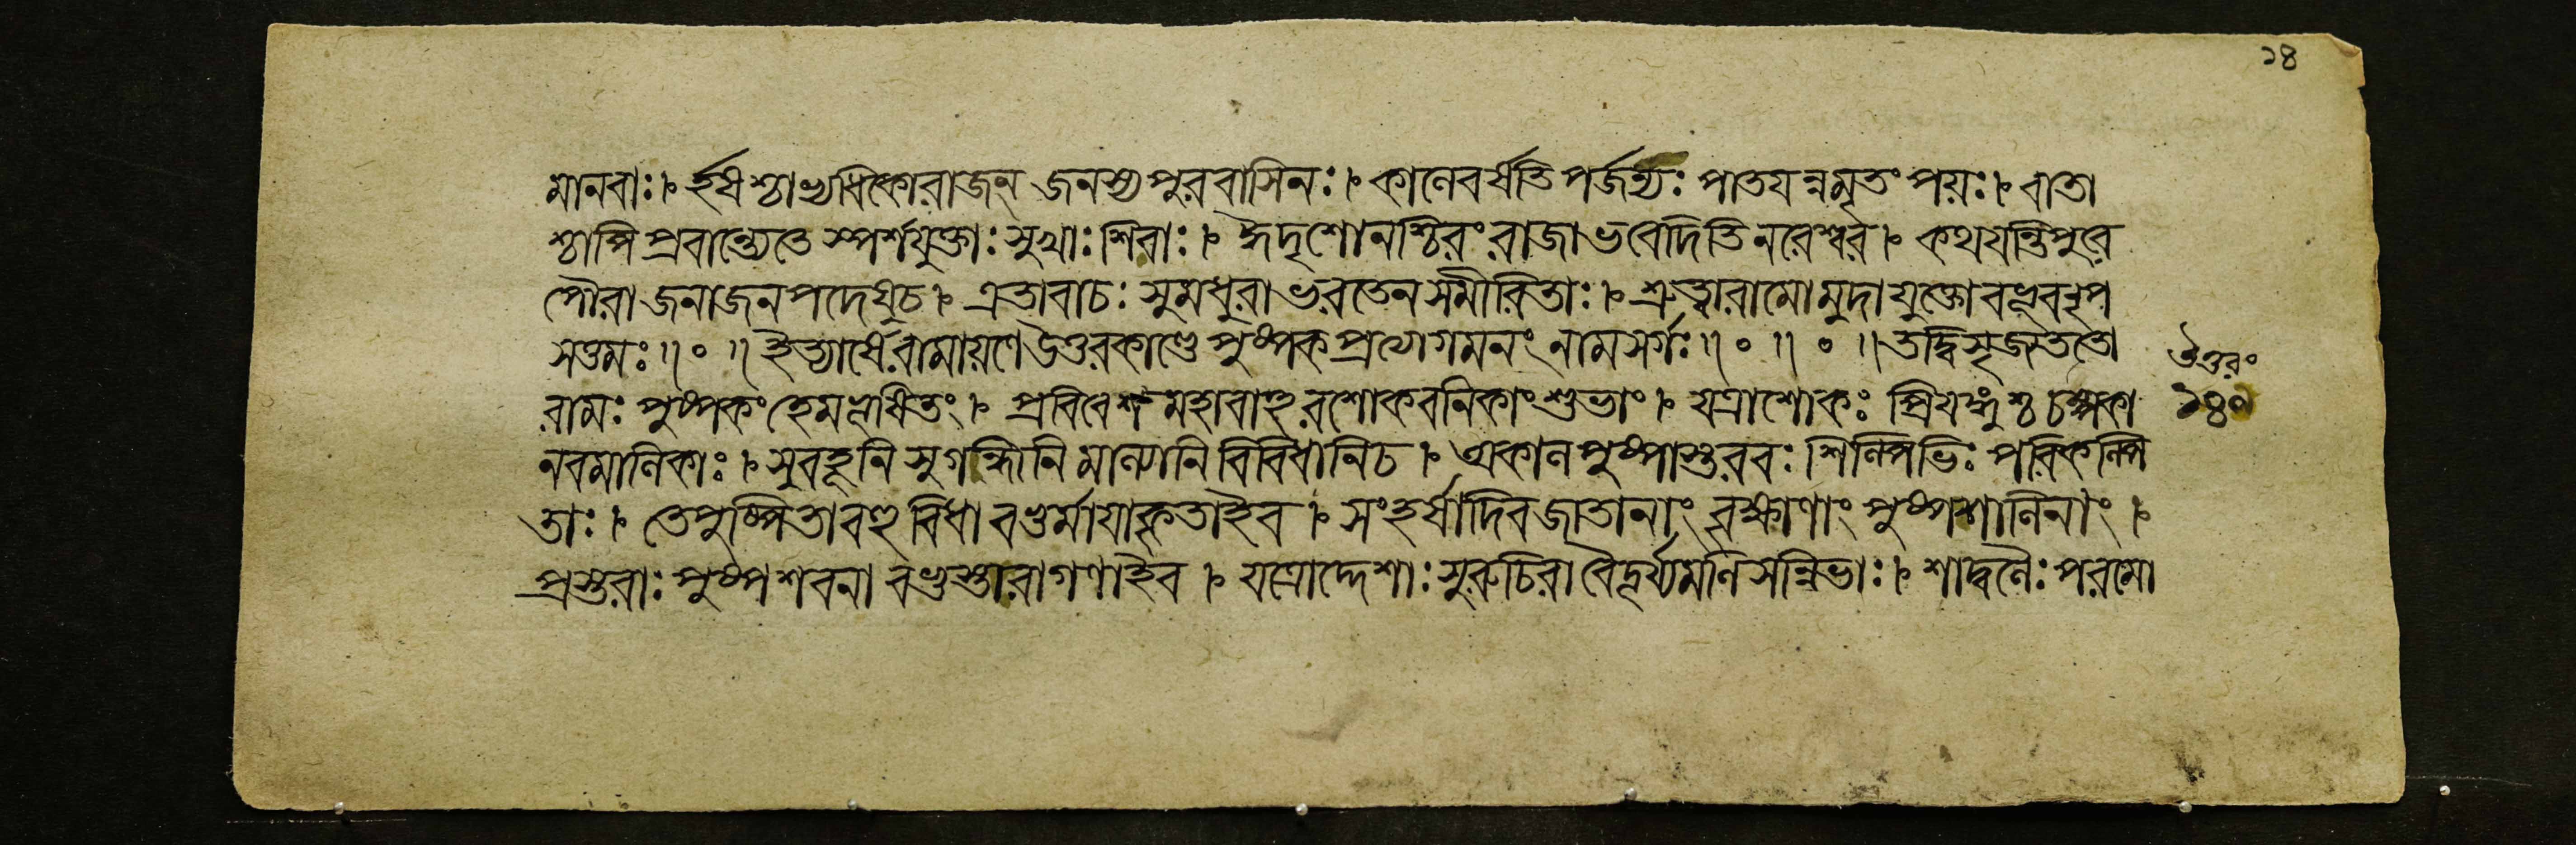 ১৪
মানবাঃ। হর্ষশ্চাভ্যধিকোরাজন্ জনস্যপুরবাসিনঃ। কালেবর্ষতিপর্জন্যঃ পাতযন্নমৃতংপয়ঃ। বাতা
শ্চাপিপ্রবান্ত্যেতে স্পর্শযুক্তাঃসুখাঃশিবাঃ। ঈদৃশোনশ্চিরংরাজাভবেদিতিনরেশ্বর। কথযন্তিপুরে
পৌরাজনাজনপদেষুচ। এতাবাচঃসুমধুরাভরতেনসমীরিতাঃ। শ্রুত্বারামোমুদাযুক্তোবভূবনৃপ
সত্তমঃ॥০॥ইত্যার্ষেরামায়ণেউত্তরকাণ্ডেপুষ্পকপ্রত্যেগমনংনামসর্গঃ॥০॥০॥তদ্বিসৃজ্যততো
রামঃপুষ্পকংহেমভূষিতং। প্রবিবেশমহাবাহুরশোকবনিকাংশুভাং। যত্রাশোকঃপ্রিযঙ্গুশ্চচম্পকা
নবমালিকাঃ। সুবহূনিসুগন্ধিনিমাল্যানিবিবিধানিচ। একালপুষ্পাস্তরবঃশিল্পিভিঃপরিকল্পি
তাঃ। তেপুষ্পিতাবহুবিধাবভুর্মাযাকৃতাইব। সংহর্ষাদিবজাতানাংবৃক্ষাণাংপুষ্পশালিনাং।
প্রস্তরাঃপুষ্পশবলাবভুস্তারাগণাইব। যত্রোদ্দেশাঃসুরুচিরাবৈদূর্য্যমণিসন্নিভাঃ। শাদ্বলৈঃপরমো
উত্তরং
১৪০